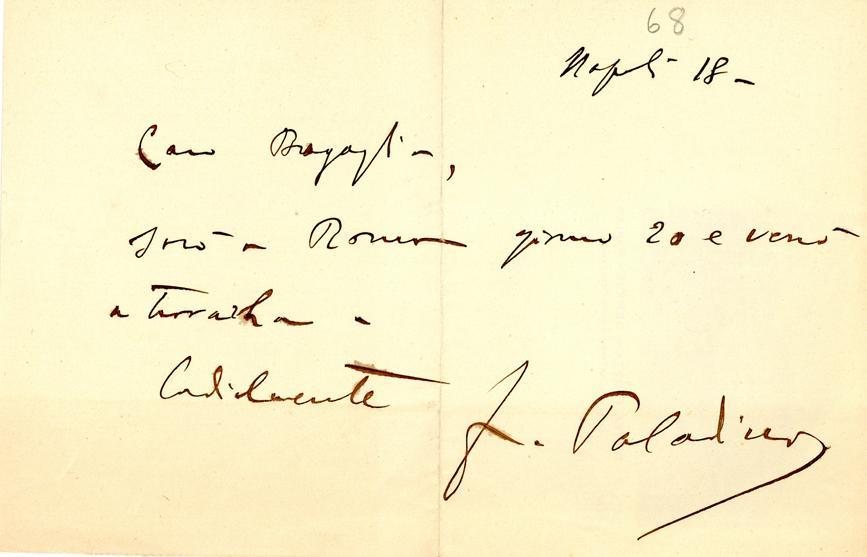 68
Napoli 18 –
Caro Bragaglia,
sarò a Roma giorno 20 e verrò
a trovarla.
Cordialmente
Paladino